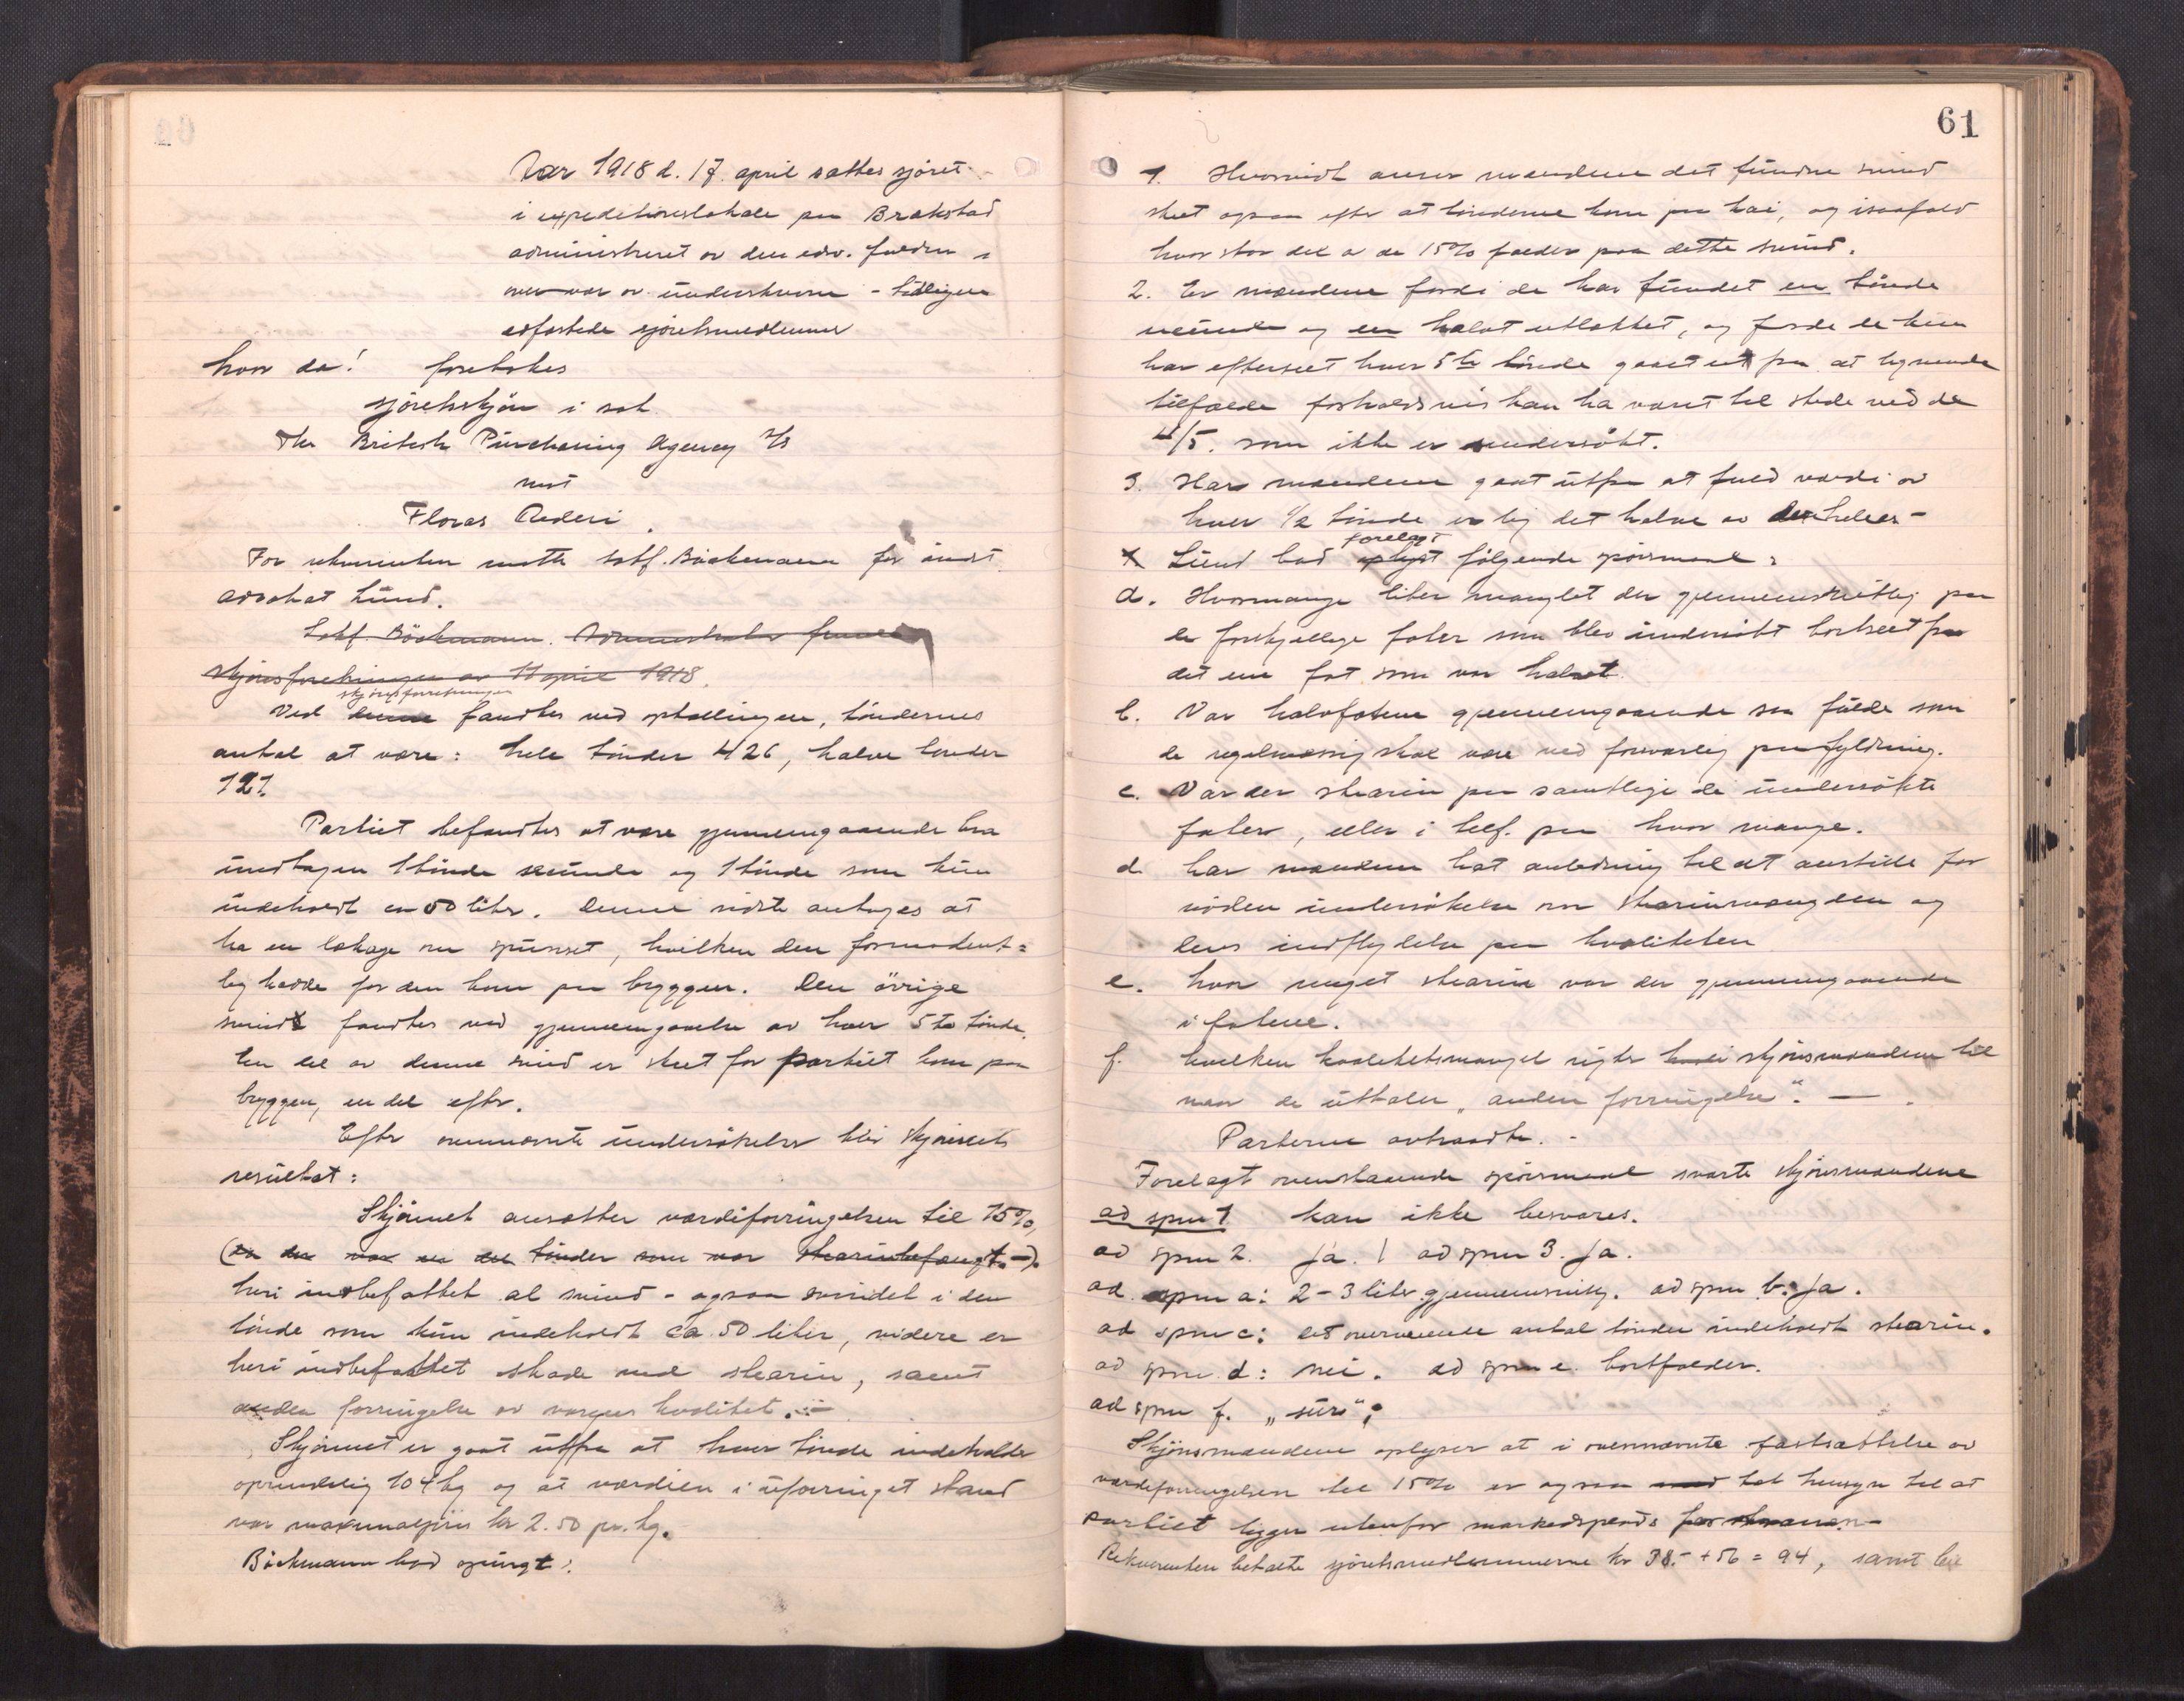 Aar 1918 d. 17. april sattes sjöret
i expeditionslokale paa Brakstad
administreret av den edsv. fuldm
overvar av underskrevne - tidligere
edfæstede sjöretsmedlemmer
hvor da! foretokes
sjöretsskjön i sak
The British Purchasing Agency A/S
mot
Floras Rederi.
For rekvirenten mötte sakf. Böckmann for indst.
advokat Lund.
Sakf. Böckmann. Administrator
skjönsforretningen av 11 april 1918.
skjönsforretningen
Ved denne fandtes ved optællingen, töndernes
antal at være: hele tönder 426, halve tönder
121.
Partiet befandtes at være gjennemgaaende bra
undtagen 1 tönde og 1 tönde som kun
indeholdt ca 50 liter. Denne sidste antages at
ha en lækage om spunset, hvilken den formodent=
lig hadde för den kom paa bryggen. Den övrige
svind fandtes ved gjennemgaaelse av hver 5te tönde.
En del av denne svind er skeet för partiet kom paa
bryggen, en del efter.
Efter ovennævnte undersökelser blev skjönnets
resultat:
Skjönnet ansætter værdiforringelsen til 15%,
(da der var en del tönder som var stearinbefængt.-).
heri indbefattet al svind - ogsaa svindet i den
tönde som kun indeholdt ca. 50 liter, videre er
heri indbefattet skade ved stearin, samt
anden forringelse av varens kvalitet.
Skjönnet er gaat ut fra at hver tönde indeholder
oprindelig 104 kg og at værdien i uforringet stand
var maximalpris kr 2.50 pr. kg.
Böckmann bad spurgt:
61
1. Hvorvidt anser mændene det fundne svind
skeet ogsaa efter at tönderne kom paa kai, og isaafald
hvor stor del av de 15% falder paa dette svind.
2. Er mændene fordi de har fundet en tönde
og en halvt utlækket, og fordi de kun
har efterseet hver 5te tönde gaaet ut fra at lignende
tilfælde forholdsvis kan ha været til stede ved de
4/5. som ikke er undersökt.
3. Har mændene gaat ut fra at fuld værdi av
hver 1/2 tönde er lig det halve av de heles -
forelagt
Lund bad oplyst fölgende spörsmaal:
a. Hvormange liter manglet der gjennemsnitlig paa
de forskjellige fater som blev undersökt bortseet fra
det ene fat som var halvt.
b. Var halvfatene gjennemgaaende saa fulde som
de regelmæssig skal være ved forsvarlig paafyldning.
c. Var der stearin paa samtlige de undersökte
fater, eller i tilf. paa hvor mange.
d. har mændene hat anledning til at anstille for
nöden undersökelse om stearinmængden og
dens indflydelse paa kvaliteten
e. hvor meget stearin var der gjennemgaaende
i fatene.
f. hvilken kvalitetsmangel sigter skjönsmændene til
naar de uttaler „anden forringelse“. —
Parterne avtraadte. -
Forelagt ovenstaaende spörsmaal svarte skjönsmændene
ad spm 1 kan ikke besvares.
ad spm 2. Ja. | ad spm 3. Ja.
ad. spm a: 2-3 liter gjennemsnitlig. ad spm b. Ja.
ad spm c: det overveiende antal tönder indeholdt stearin.
ad spm. d: Nei. ad spm e. bortfalder.
ad spm f. „sur“.
Skjönsmændene oplyser at i ovennævnte fastsættelse av
værdiforringelsen til 15% er ogsaa tat hensyn til at
partiet ligger utenfor markedsplads
Rekvirenten betalte sjöretsmedlemmerne kr 38.- + 56 = 94, samt